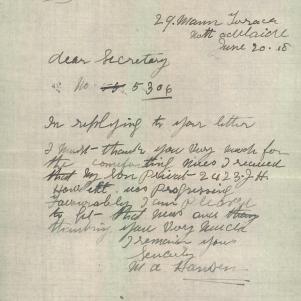 29. Mann Terrace
Nth Adelaide
June 20. 18
dear Secretary
No 5306
In replying to your letter
I must thank you very much for
the comforting news I received
that my son Privat 2423. J. H
was Progressing
Favourably I am pleased
to get that news and
thanking you very much
I remain yours
Sencerly
M A